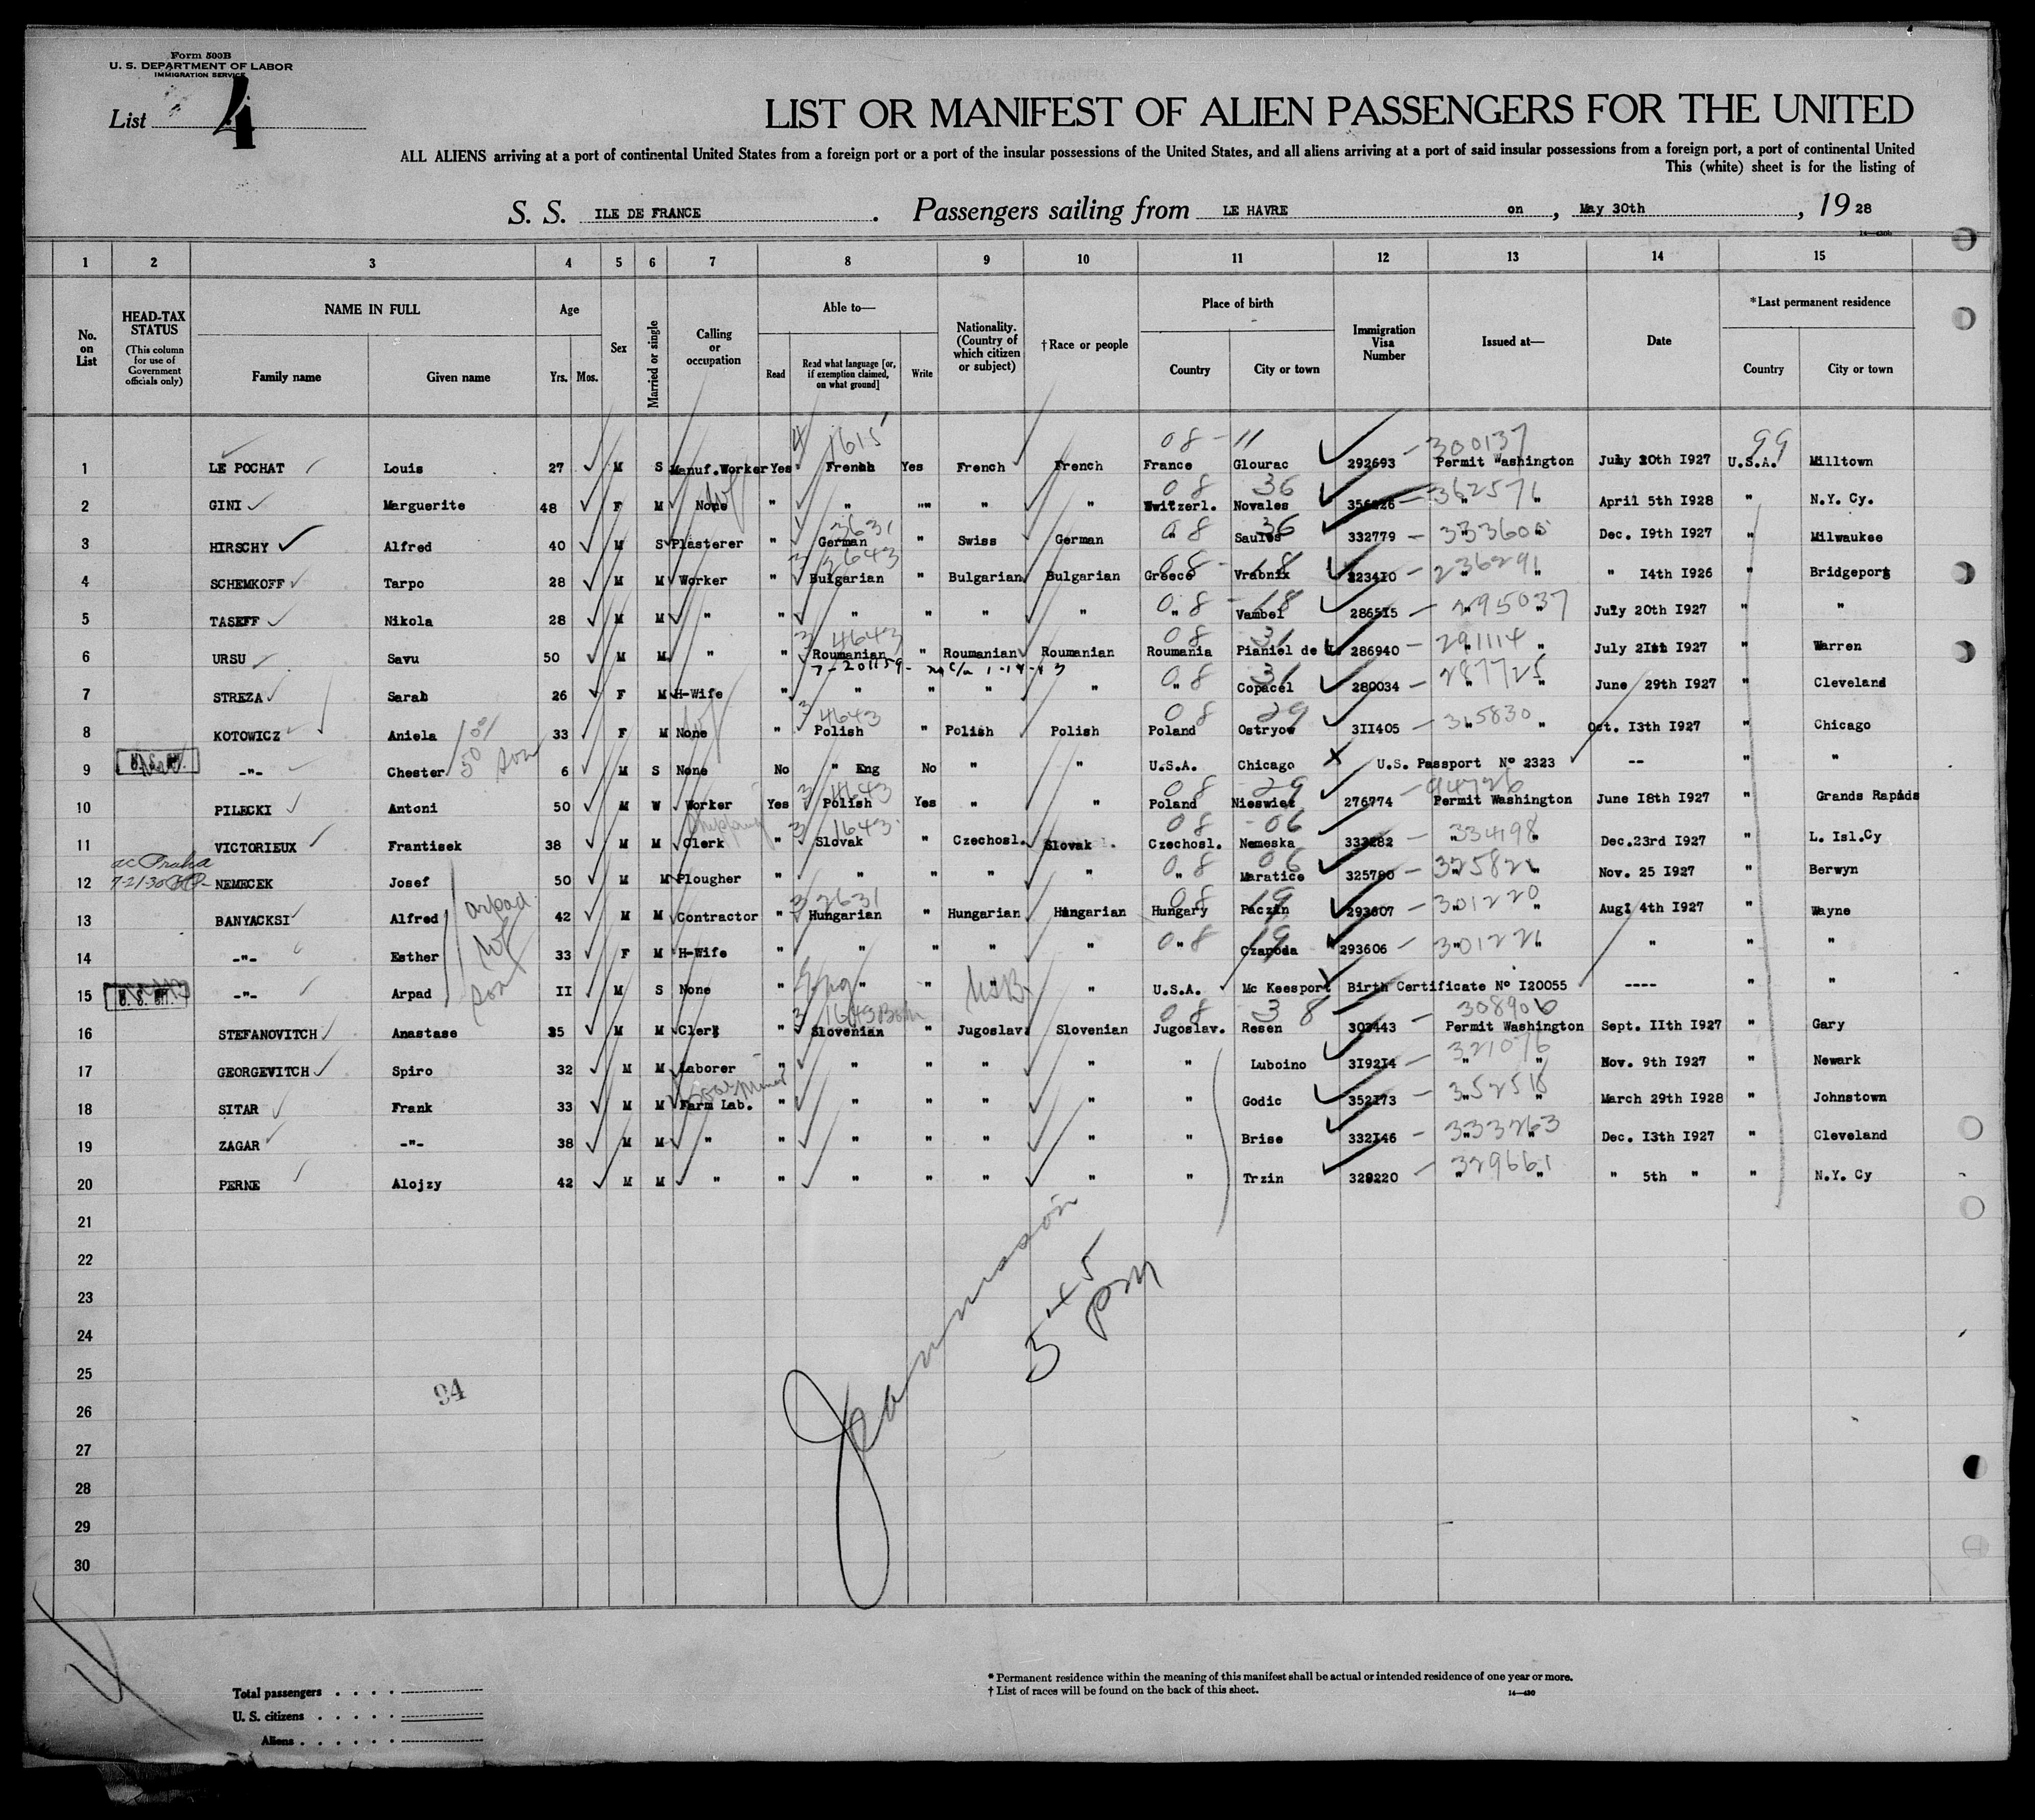 Form 500B
U. S. DEPARTMENT OF LABOR
IMMIGRATION SERVICE
List 4
LIST OR MANIFEST OF ALIEN PASSENGERS FOR THE UNITED
ALL ALIENS arriving at a port of continental United States from a foreign port or a port of the insular possessions of the United States, and all aliens arriving at a port of said insular possessions from a foreign port, a port of continental United
This (white) sheet is for the listing of
S. S. ILE DE FRANCE . Passengers sailing from LE HAVRE on , May 30th , 19 28
1 2 3 4 5 6 7 8 9 10 11 12 13 14 15
No. on List
HEAD-TAX STATUS (This column for use of Government officials only)
NAME IN FULL Family name Given name
Age Yrs. Mos.
Sex
Married or single
Calling or occupation
Able to— Read Read what language [or, if exemption claimed, on what ground] Write
Nationality. (Country of which citizen or subject)
†Race or people
Place of birth Country City or town
Immigration Visa Number
Issued at—
Date
*Last permanent residence Country City or town
4 1615 08 - 11 300137 99
1 LE POCHAT Louis 27 M S Manuf.Worker Yes French Yes French French France Glourac 292693 Permit Washington July 20th I927 U.S.A. Milltown
08 36 362571
2 GINI Marguerite 48 F M None " " "" " " Switzerl. Novales " " April 5th I928 " N.Y. Cy.
3631 08 36 333605
3 HIRSCHY Alfred 40 M S Plasterer " German " Swiss German " Saules 332779 Dec. I9th I927 " Milwaukee
3 3643 08 - 18 236291
4 SCHEMKOFF Tarpo 28 M M Worker " Bulgarian " Bulgarian Bulgarian Greece Vrabnix 2234I0 " " " I4th I926 " Bridgeport
08 - 18 295037
5 TASEFF Nikola 28 M M " " " " " " " Vambel 2865I5 " " July 20th I927 " "
3 4643 08 31 291114
6 URSU Savu 50 M M " " Roumanian Roumanian Roumanian Roumania Pianiel de 286940 " " July 2Ist I927 " Warren
7-201159- 08 31 287725
7 STREZA Sarah 26 F M H-Wife " " " " " " Copacel 280034 " " June 29th I927 " Cleveland
3 4643 08 29 315830
8 KOTOWICZ Aniela 33 F M None " Polish " Polish Polish Poland Ostryow 3II405 " " Oct. I3th I927 " Chicago
9 -"- Chester son 6 M S None No " Eng No " " U.S.A. Chicago X U.S. Passport Nº 2323 -- " "
3 4643 08 29 94726
10 PILECKI Antoni 50 M W Worker Yes Polish Yes " " Poland Nieswiez 276774 Permit Washington June I8th I927 " Grands Rapids
3 1643 08 - 06 334198
11 VICTORIEUX Frantisek 38 M M Clerk " Slovak " Czechosl. Slovak Czechosl. Nemeska 333282 " " Dec.23rd I927 " L. Isl.Cy
08 06
12 NEMECEK Josef 50 M M Plougher " " " " " " Maratice 325780 " " Nov. 25 I927 " Berwyn
3 2631 08 19 301220
13 BANYACKSI Alfred arpad 42 M M Contractor " Hungarian " Hungarian Hungarian Hungary Paczin 293607 " " Aug 4th I927 " Wayne
08 19 301221
14 -"- Esther wf 33 F M H-Wife " " " " " " Czapoda 293606 " " " " "
15 -"- Arpad son II M S None " Eng " " USB " U.S.A. Mc Keesport Birth Certificate Nº I20055 ---- " "
3 1643 08 38 308906
16 STEFANOVITCH Anastase 35 M M Clerk " Slovenian " Jugoslav. Slovenian Jugoslav. Resen 303443 Permit Washington Sept. IIth I927 " Gary
321076
17 GEORGEVITCH Spiro 32 M M Laborer " " " " " " Luboino 3I92I4 " " Nov. 9th I927 " Newark
352518
18 SITAR Frank 33 M M Farm Lab. " " " " " " Godic 352I73 " " March 29th I928 " Johnstown
333263
19 ZAGAR -"- 38 M M " " " " " " " Brise 332I46 " " Dec. I3th I927 " Cleveland
329661
20 PERNE Alojzy 42 M M " " " " " " " Trzin 329220 " " " 5th " " N.Y. Cy
21
22
23
5 45 pm
24
25
94
26
27
28
29
30
* Permanent residence within the meaning of this manifest shall be actual or intended residence of one year or more.
† List of races will be found on the back of this sheet.
Total passengers
U. S. citizens
Aliens